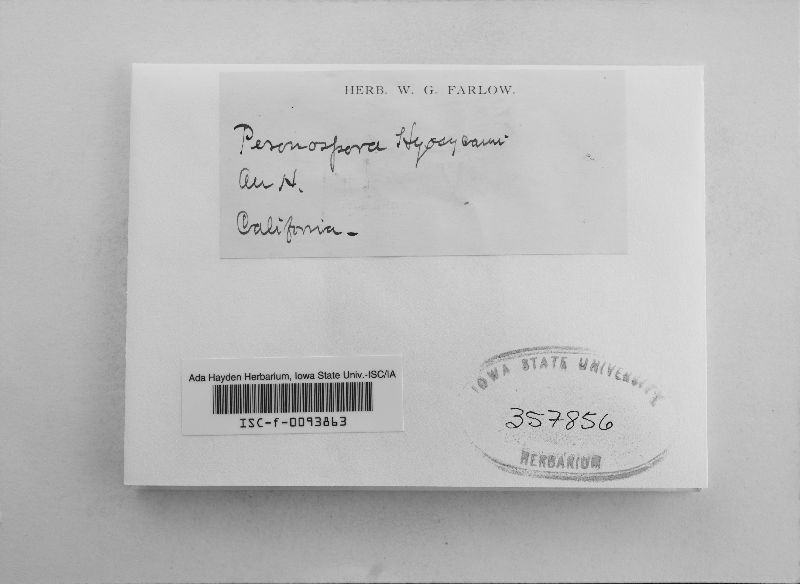 HERB. W. G. FARLOW.
Peronospora Hyoscyami
au H.
California.
Ada Hayden Herbarium, Iowa State Univ.-ISC/IA
ISC-f-0093863
IOWA STATE UNIVERSITY
357856
HERBARIUM